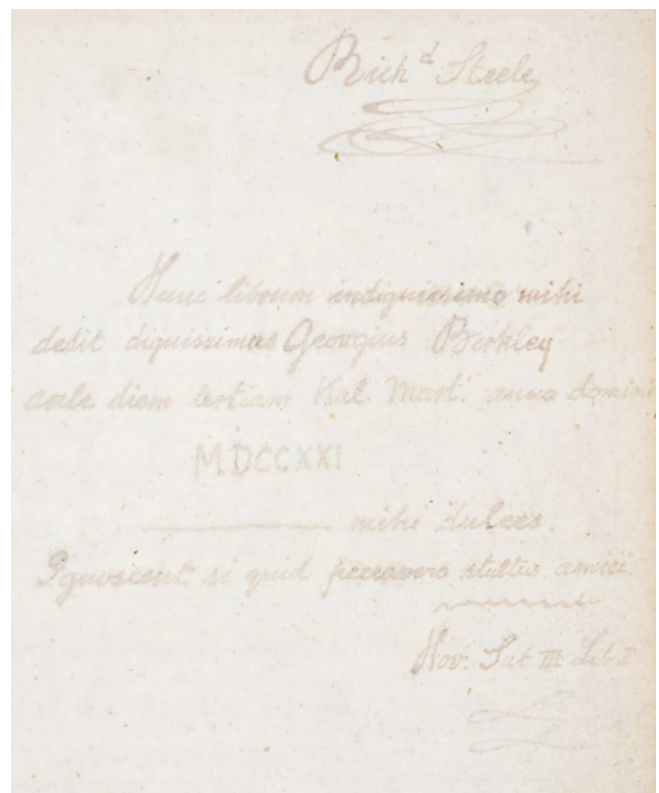 Rich d Steele
Hunc librum indignissimo mihi
dedit dignissimus Georgius Berkley
ante diem tertiam Kal. Mart. anno domini
MDCCXXI
mihi dulces
Ignoscent si quid peccavero stultus amici
Hor. Sat III Lib I